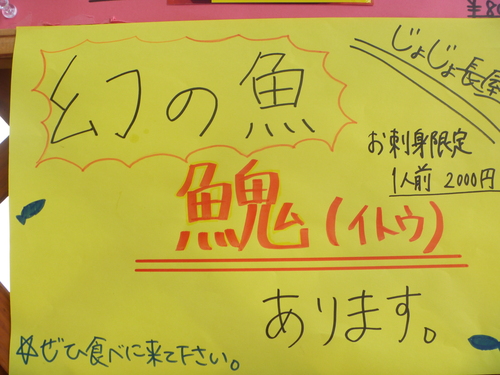 幻の魚
じょじょ長屋
お刺身限定
1人前 2000円
魚鬼(イトウ)
あります。
☆ぜひ食べに来て下さい。